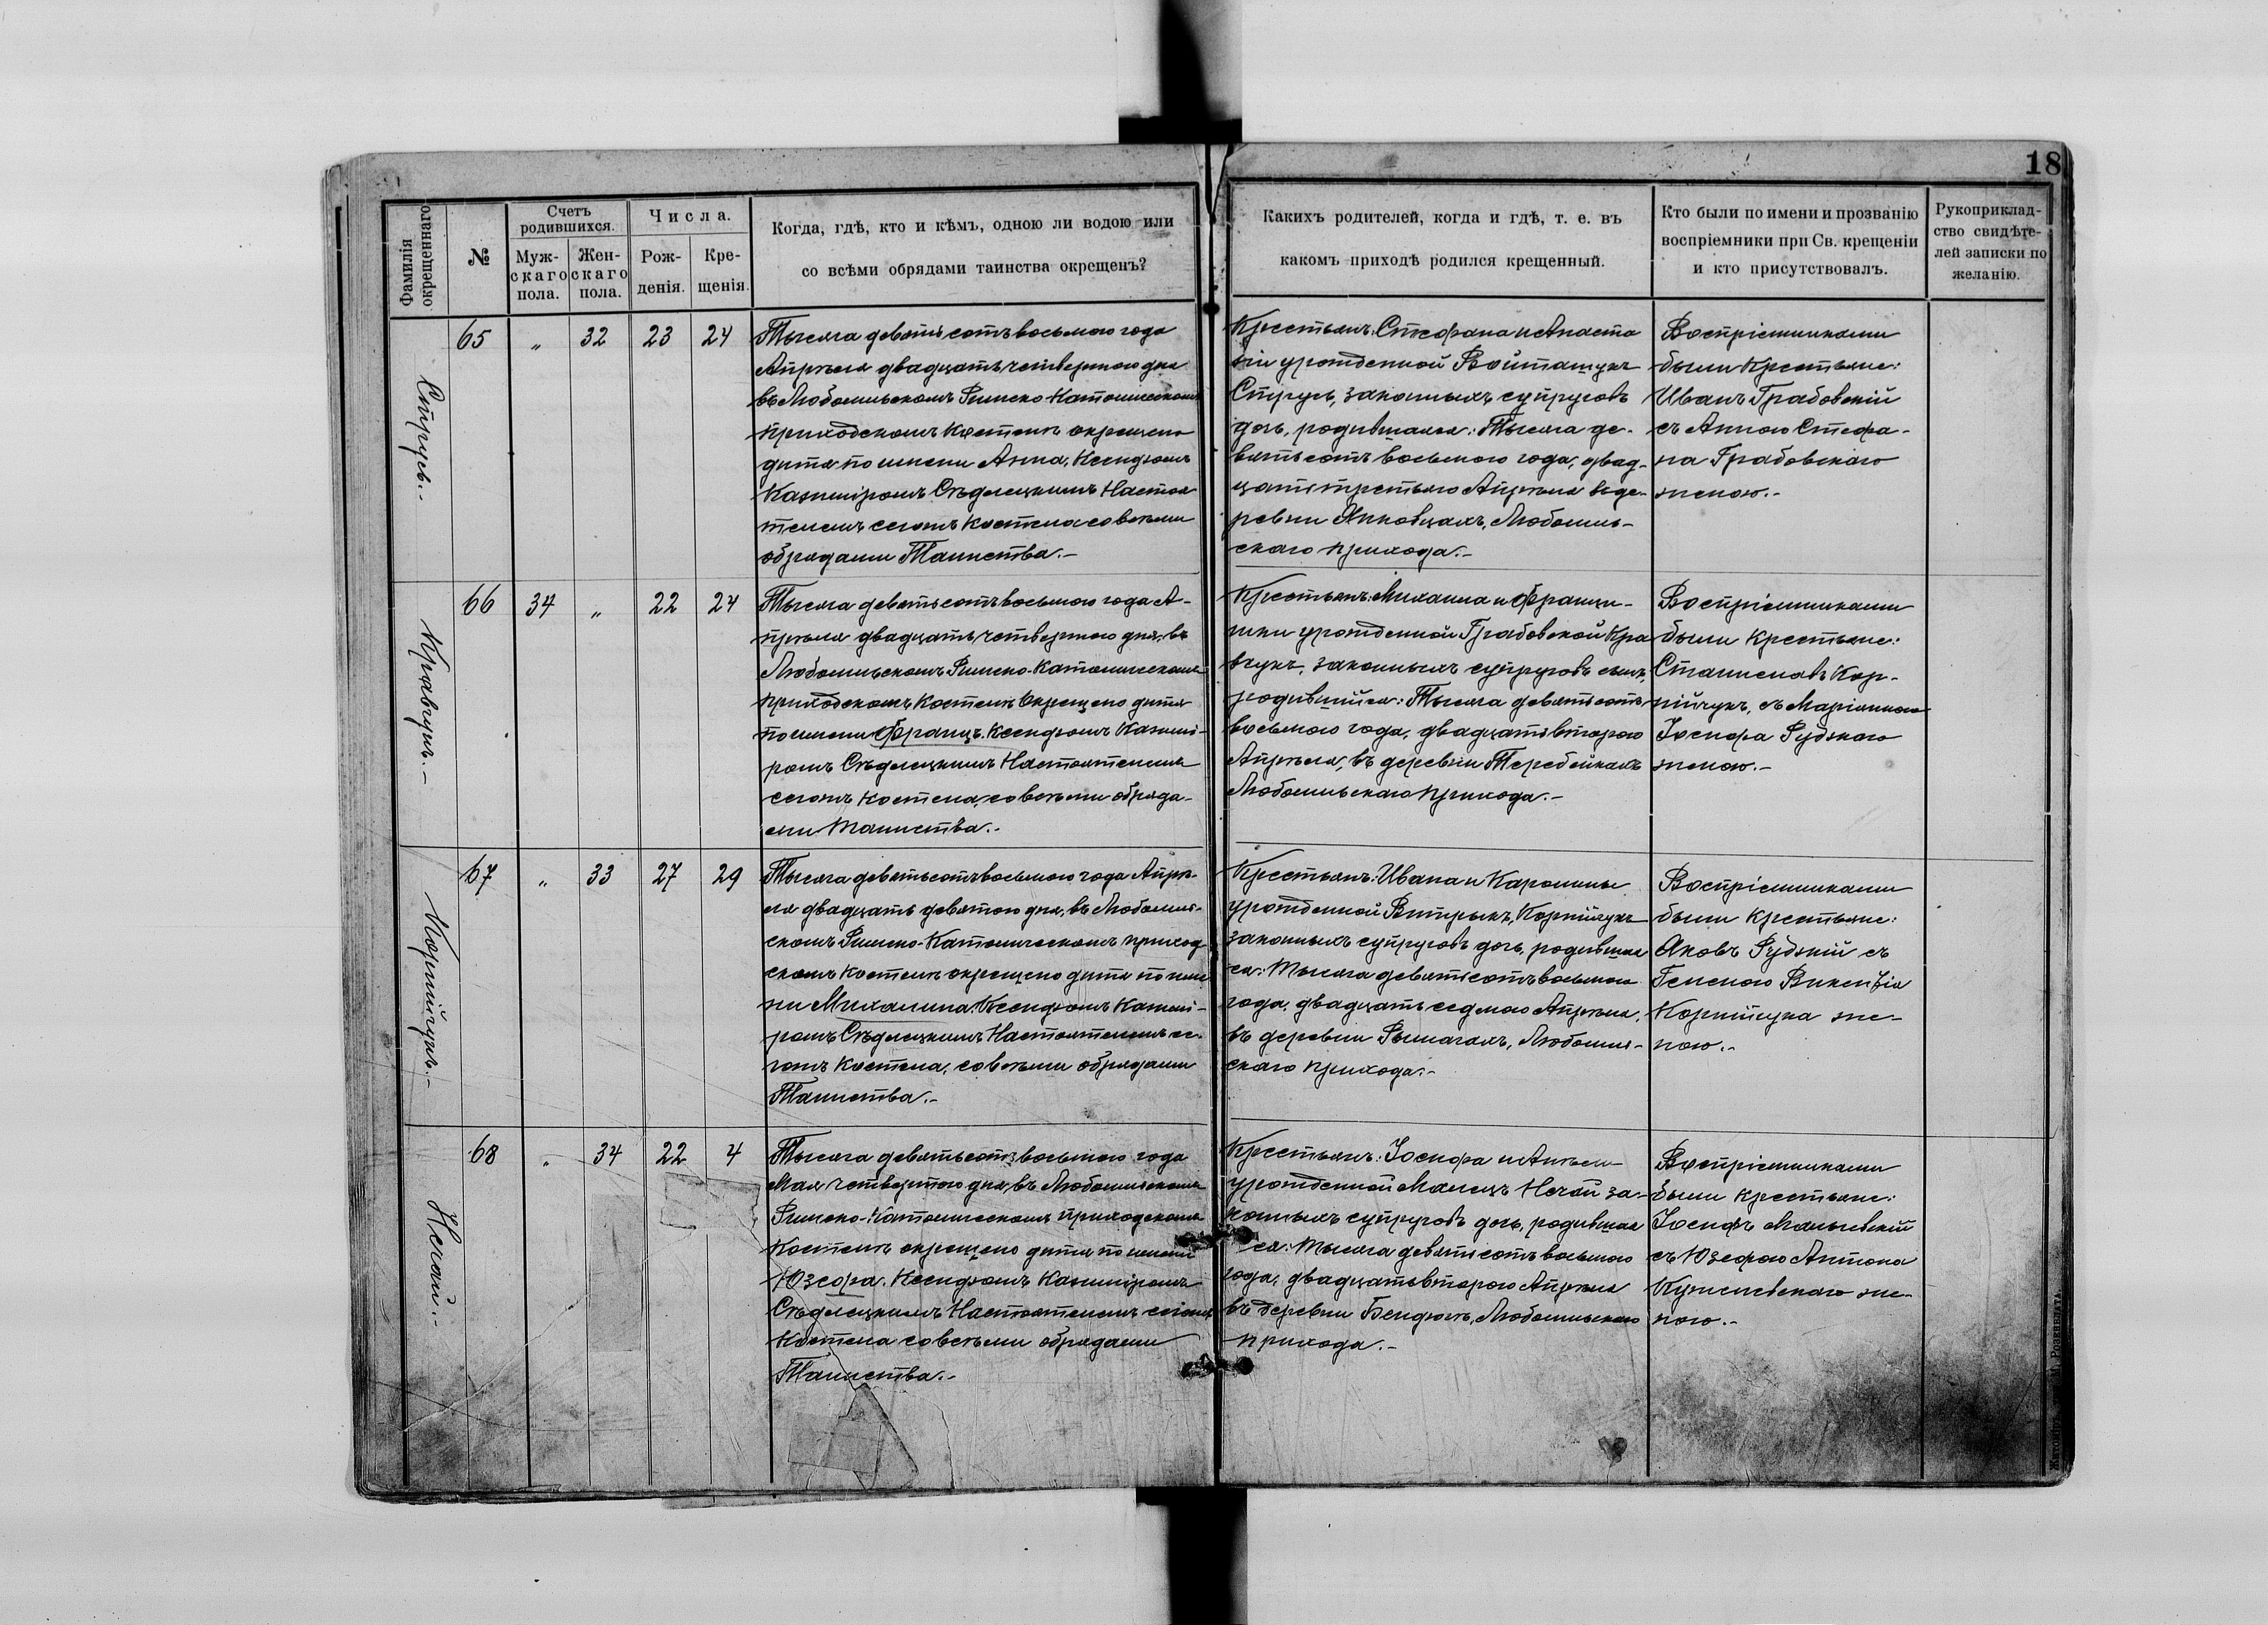 18
Фамилія
окрещеннаго
№
Счетъ
родившихся.
Муж-
скаго
пола.
Жен-
скаго
пола.
Числа.
Рож-
денія.
Кре-
щенія.
Когда, гдѣ, кто и кѣмъ, одною ли водою или
со всѣми обрядами таинства окрещенъ?
Какихъ родителей, когда и гдѣ, т. е. въ
какомъ приходѣ родился крещенный.
Кто были по имени и прозванію
воспріемники при Св. крещеніи
и кто присутствовалъ.
Рукоприклад-
ство свидѣте-
лей записки по
желанію.
Струсь.-
65 „ 32 23 24
Тысяча девятьсотъ восьмого года
Апрѣля двадцать четвертого дня
въ Любомльскомъ Римско-Католическомъ
приходскомъ Костелѣ окрещено
дитя по имени Анна, Ксендзомъ
Казиміромъ Сѣдлецкимъ Настоя-
телемъ сегожъ Костела со всѣми
обрядами Таинства.-
Крестьянъ: Стефана и Анаста
зіи урожденной Войташукъ
Струсь, законныхъ супруговъ
дочь, родившаяся: Тысяча де-
вятьсотъ восьмого года, двад-
цать третьяго Апрѣля въ де-
ревни Янковцахъ, Любомль-
скаго прихода.-
Воспріемниками
были Крестьяне:
Иванъ Грабовскій
съ Анною Стефа-
на Грабовскаго
женою.-
Кравчукъ.-
66 34 „ 22 24
Тысяча девятьсотъ восьмого года А-
прѣля двадцать четвертого дня, въ
Любомльскомъ Римско-Католическомъ
приходскомъ Костелѣ Окрещено дитя
по имени Францъ. Ксендзомъ Казимі-
ромъ Сѣдлецкимъ Настоятелемъ
сегожъ Костела, со всѣми обряда-
ми Таинства.-
Крестьянъ: Михаила и Францы-
шки урожденной Грабовской Кра
вчукъ, законныхъ супруговъ сынъ,
родившійся: Тысяча девятьсотъ
восьмого года, двадцать второго
Апрѣля, въ деревни Теребейкахъ
Любомльскаго прихода.-
Воспріемниками
были Крестьяне:
Станиславъ Кор-
нійчукъ, съ Маріанною
Іосифа Рудзкаго
женою.-
Корнійчукъ.-
67 „ 33 27 29
Тысяча девятьсотъ восьмого года Апрѣ-
ля двадцать девятого дня, въ Любомль-
скомъ Римско-Католическомъ приход-
скомъ Костелѣ окрещено дитя по име
ни Михалина. Ксендзомъ Казимі-
ромъ Сѣдлецкимъ Настоятелемъ се-
гожъ Костела, со всѣми обрядами
Таинства.-
Крестьянъ: Ивана и Каролины
урожденной Витрыкъ, Корнійчукъ
законныхъ супруговъ дочь, родившая
ся: Тысяча девятьсотъ восьмого
года, двадцать седмого Апрѣля,
въ деревни Рымачахъ, Любомль-
скаго прихода.-
Воспріемниками
были Крестьяне:
Яковъ Рудзкій съ
Геленою Викентія
Корнійчука же-
ною.-
Нечай.-
68 „ 34 22 4
Тысяча девятьсотъ восьмого года
Мая четвертого дня, въ Любомльскомъ
Римско-Католическомъ приходскомъ
Костелѣ окрещено дитя по имени
Юзефа. Ксендзомъ Казиміромъ
Сѣдлецкимъ Настоятелемъ сегожъ
Костела со всѣми обрядами
Таинства.-
Крестьянъ: Іосифа и Анѣли
урожденной Малецъ Нечай за-
конныхъ супруговъ дочь, родившая
ся: Тысяча девятьсотъ восьмого
года, двадцать второго Апрѣля
въ деревни Бендюгѣ, Любомльскаго
прихода.-
Воспріемниками
были Крестьяне:
Іосифъ
съ Юзефою Антона
же-
ною.-